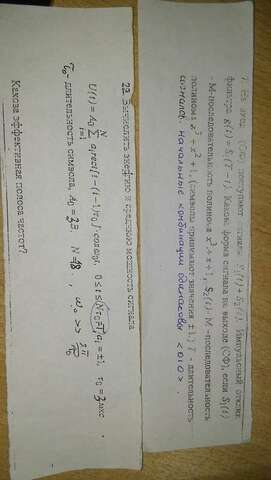 7. На вход (СФ) поступает сигнал S₁(t) + S₂(t). Импульсный отклик
фильтра g(t) = S₁(T − t). Какова форма сигнала на выходе (СФ), если S₁(t)
- М-последовательность полинома x³ + x + 1, S₂(t) М-последовательность
полинома x³ + x² + 1, (символы принимают значения ±1) T - длительность
сигнала. Начальные комбинации одинаковы <010>.
22. Вычислить энергию и среднюю мощность сигнала
U(t) = A₀ ∑ᵢ₌₁ᴺ aᵢ rect[t − (i − 1)τ₀] cos ω₀t, 0 ≤ t ≤ Nτ₀, aᵢ = ±1, τ₀ = 3 мкс.
τ₀ - длительность символа, A₀ = 3В, N = 48, ω₀ >> 2π/τ₀
Какова эффективная полоса частот?